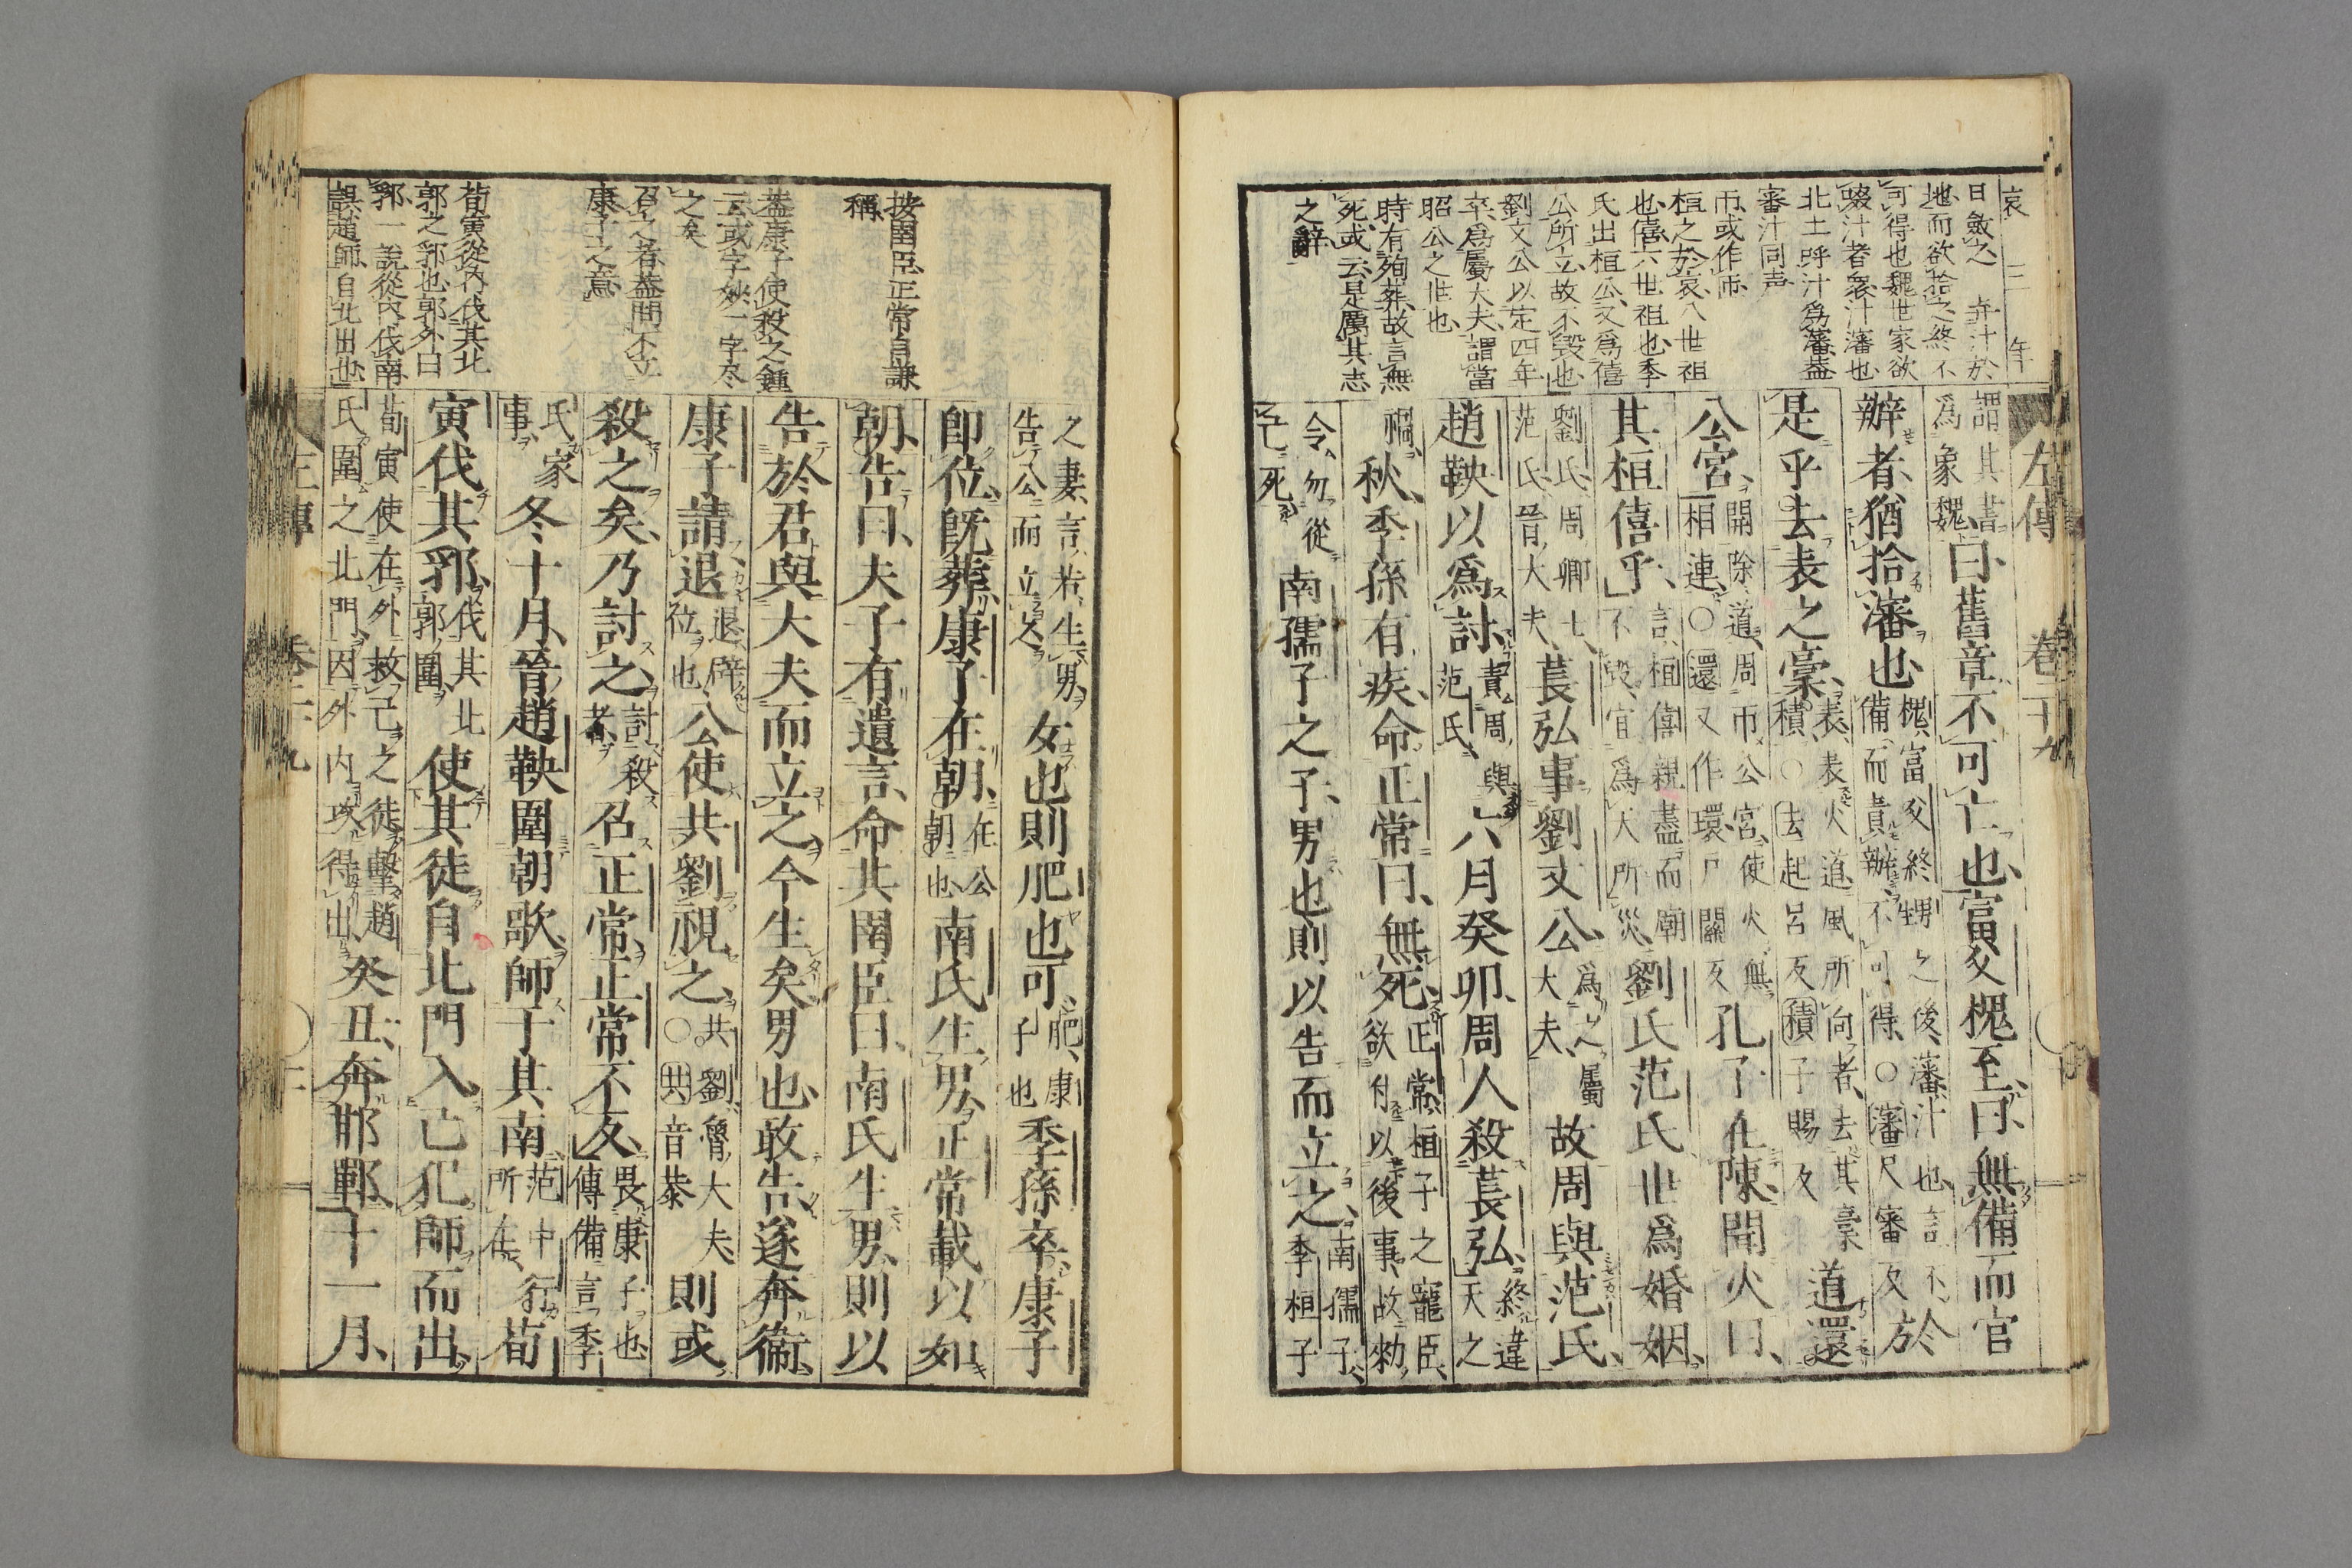 哀 三 年
日斂之 弃汁於
地而欲拾之終不
可得也魏世家欲
啜汁者衆汁瀋也
北土呼汁爲瀋葢
審汁同声
帀或作帀
桓之於哀八世祖
也僖六世祖也季
氏出桓公又爲僖
公所立故不毀也
劉文公以定四年
卒爲屬大夫謂當
昭公之世也
時有殉葬故言無
死或云是厲其志
之辭
左傳 卷二十九
謂其書
爲象魏
曰舊章不可亡也富父槐至曰無備而官
辦者猶拾瀋也
槐富父終甥之後瀋汁也言不
備而責辦不可得○瀋尺審反
於
是乎去表之槀
表表火道風所向者去其槀
積○去起呂反積子賜反
道還
公宮
開除道周帀公宮使火無
相連○還又作環戸關反
孔子在陳聞火曰
其桓僖乎
言桓僖親盡而廟
不毀宜爲天所災
劉氏范氏世爲婚姻
劉氏周卿士
范氏晉大夫
萇弘事劉文公
爲之屬
大夫
故周與范氏
趙鞅以爲討
責周與
范氏
六月癸卯周人殺萇弘
終違
天之
禍
秋季孫有疾命正常曰無死
正常桓子之寵臣
欲付以後事故勑
令勿從
己死
南孺子之子男也則以告而立之
南孺子
季桓子
之妻言若生男
告公而立之
女也則肥也可
肥康
子也
季孫卒康子
即位既葬康子在朝
在公
朝也
南氏生男正常載以如
朝告曰夫子有遺言命其圉臣曰南氏生男則以
告於君與大夫而立之今生矣男也敢告遂奔衞
康子請退
退辟
位也
公使共劉視之
共劉魯大夫
○共音恭
則或
殺之矣乃討之
討殺
者
召正常正常不反
畏康子也
傳備言季
氏家
事
冬十月晉趙鞅圍朝歌師于其南
范中行
所在
荀
寅伐其郛
伐其北
郭圍
使其徒自北門入己犯師而出
荀寅使在外救己之徒擊趙
氏圍之北門因外內攻得出
癸丑奔邯鄲十一月
按圉臣正常自謙
稱
葢康子使殺之鍾
云或字妙一字尽
之矣
召之者葢問不立
康子之意
荀寅從内伐其北
郭之郛也郭外曰
郛一説從内伐南
誤趙師自北出也